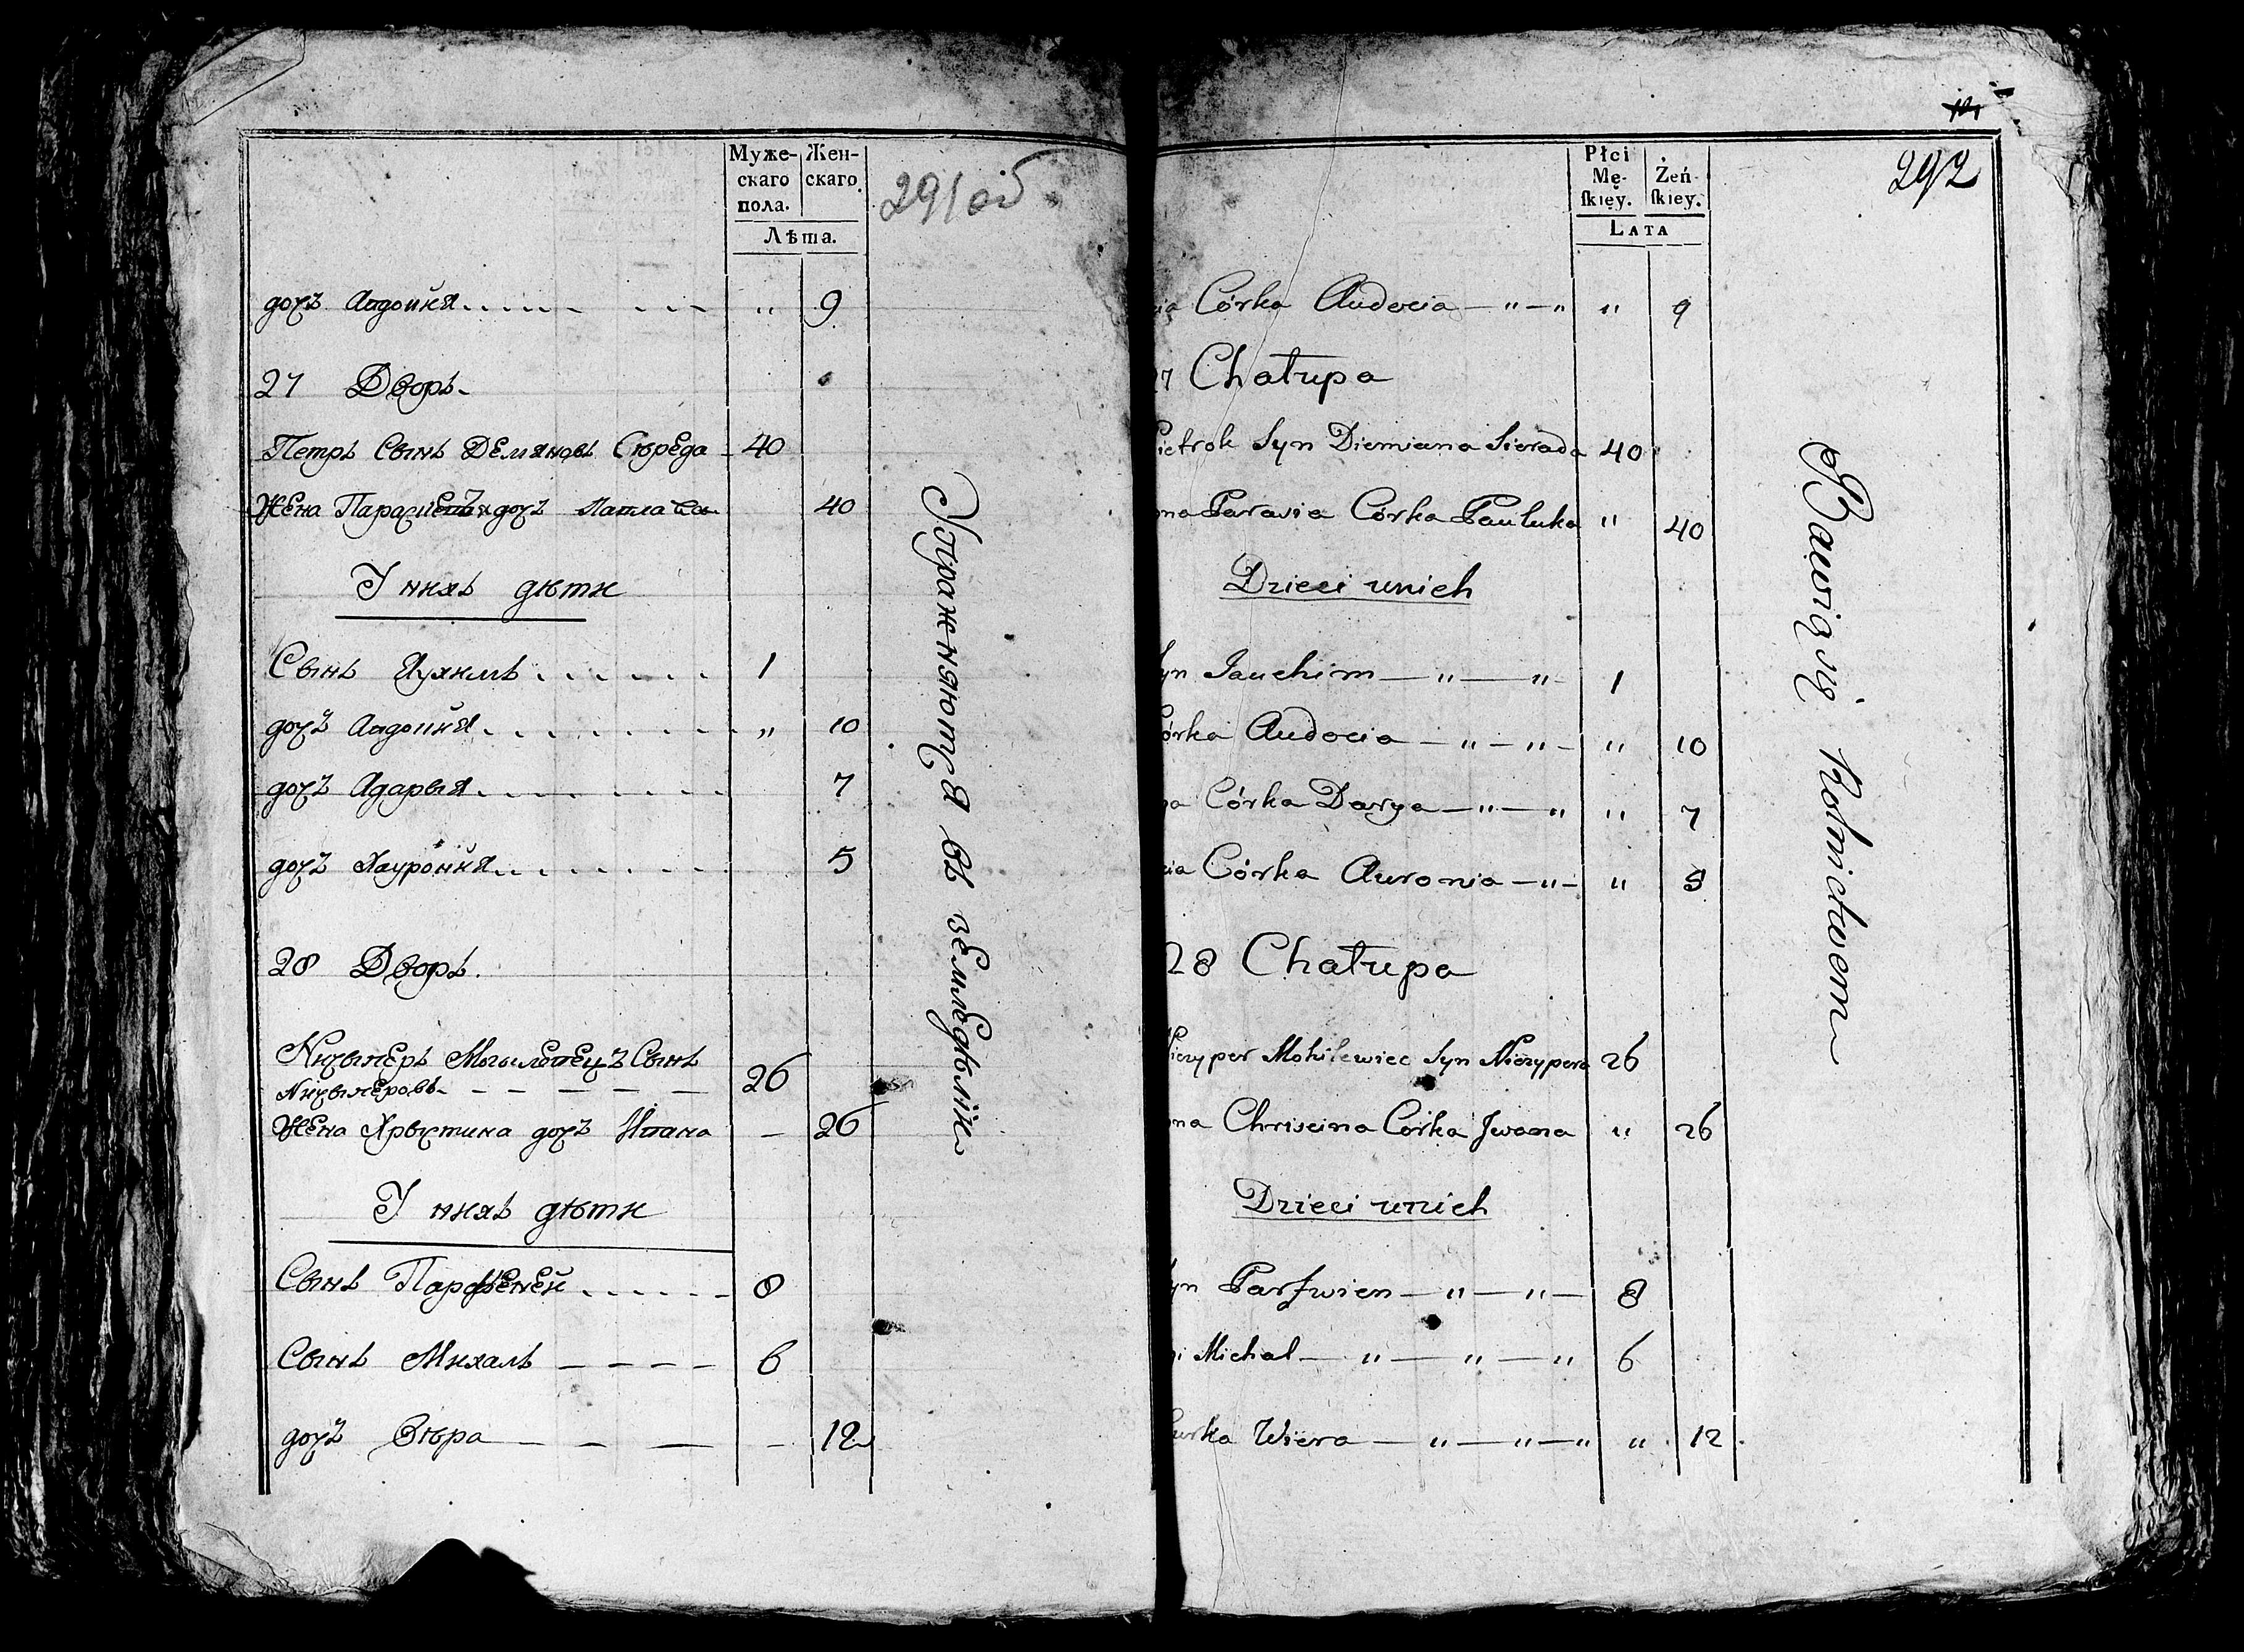 Муже-
скаго
пола.
Жен-
скаго.
Лѣта.
291 об
дочъ Авдоция 〃 9
27 Дворъ
Петръ Сынъ Демяновъ Сѣреда 40
Жена дочъ Павла 40
У нихъ дѣти
Сынъ Яухимъ 1
дочъ Авдоция 〃 10
дочъ Адарыя 7
дочъ Хауроння 5
28 Дворъ.
Ничыперъ Могилевецъ Сынъ
Ничыперовъ 26
Жена Хрыстина дочъ Ивана — 26
У нихъ дѣти
Сынъ Парфеней 8
Сынъ Михалъ 6
дочъ Вѣра 12
Упражняются въ земледѣлiи
Płci
Mę-
ſkiey.
Żeń-
ſkiey.
LATA
292
Córka Audocia — 〃 — 〃 〃 9
Chałupa
Pietrok Syn Diemiana Sierada 40
Parasia Córka Pauluka 〃 40
Dzieci unich
Jauchim — 〃 — 〃 1
Córka Audocia — 〃 — 〃 — 〃 10
Córka Darya — 〃 — 〃 〃 7
Córka Auronia — 〃 — 〃 5
28 Chałupa
Niczyper Mohilewiec Syn Niczypera 26
Chriscina Córka Jwana 〃 26
Dzieci unich
Parfwien — 〃 — 〃 — 8
Michal — 〃 — 〃 — 〃 6
Curka Wiera — 〃 — 〃 — 〃 〃 12
Bawią się Rolnictwem